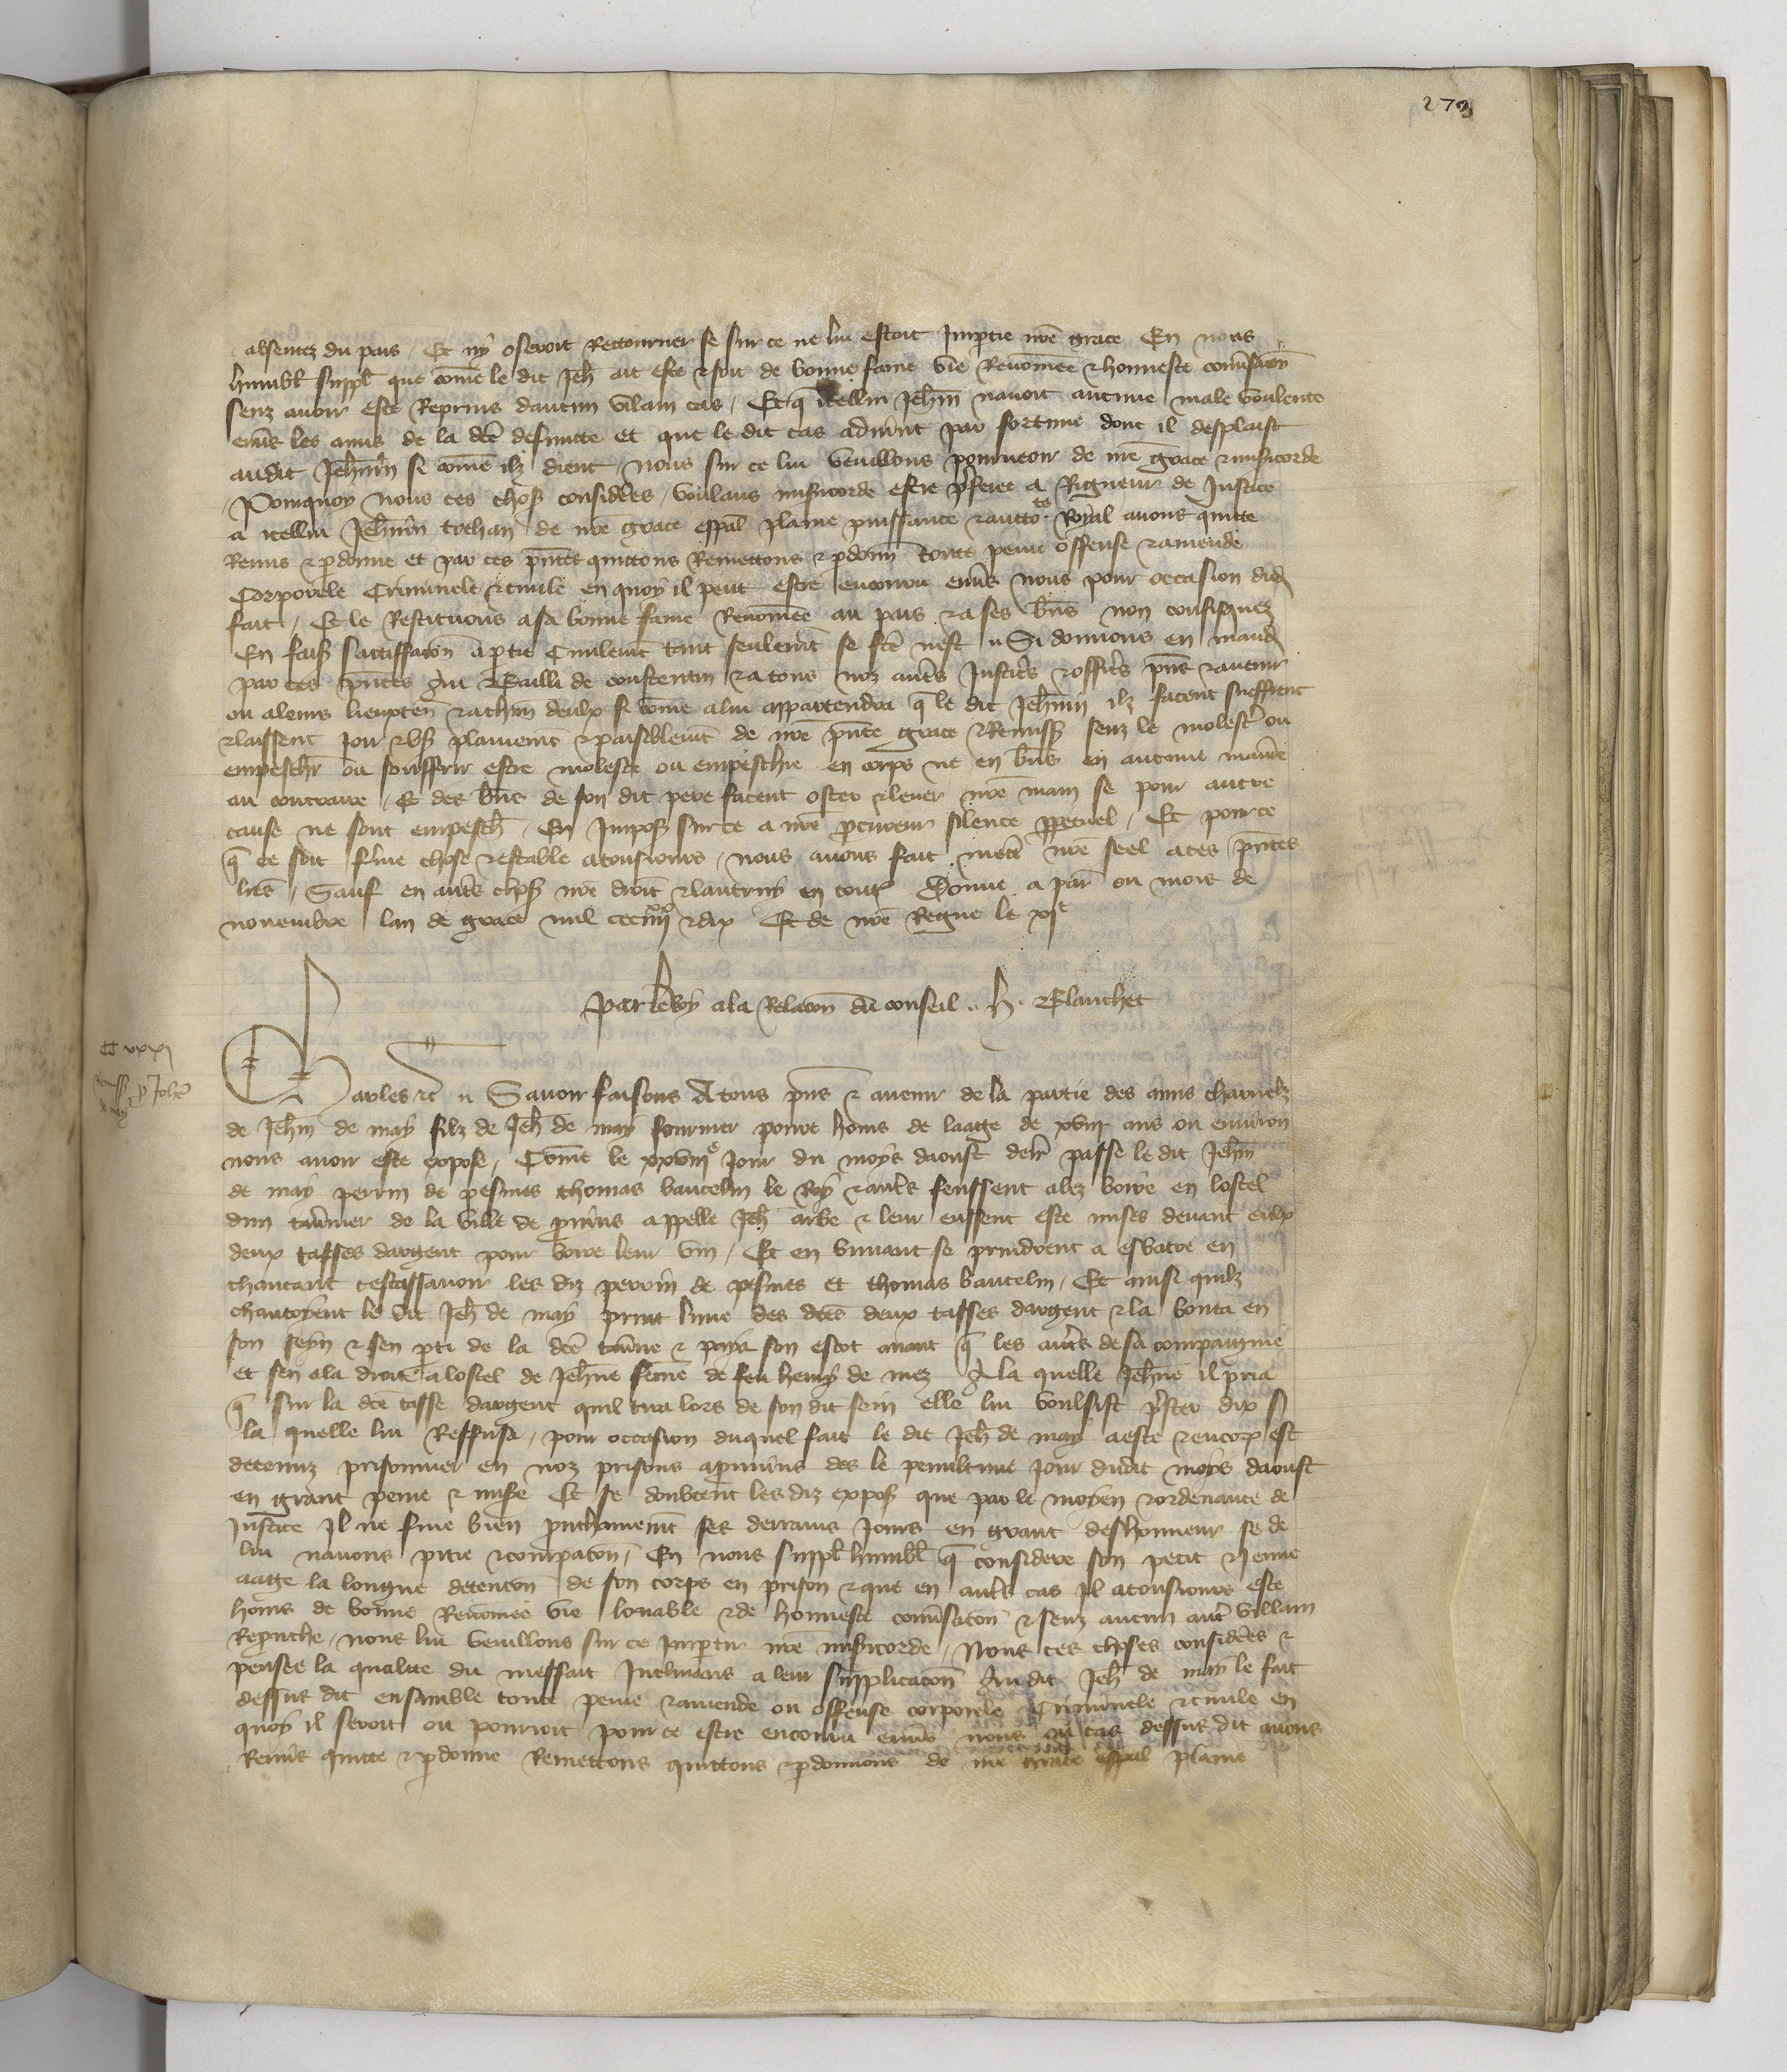 273
absentez du pais / Et ny oseroit Retourner se sur ce ne lui estoit Imptie nre grace En nous
humbl suppl que come le dit Jeh ait este & soit de bonne fame vie Renomee & honneste conversacon
senz avoir este Reprins daucun vilain cas / Et q icellui Jehan navoit aucune male voulente
envs les amis de la dce defuncte et que le dit cas advint par fortune dont il desplaist
audit Jehnin si come ilz dient / nous sur ce lui vueillons pourveoir de nre grace & misicorde
Pourquoy nous ces chos considers / voulans misicorde estre pferee a Rigueur de Justice
a icellui Jehnin trehan de nre grace espal plaine puissance & auctote Royal avons quitte
Remis & pdonne et par ces pntes quittons Remettons & pdonn toute peine offense & amende
Corporele Criminele & civile en quoy il peut estre encouru envs nous pour occasion dud
fait / Et le Restituons a sa bonne fame Renomee au pais & a ses bns non confisquez
En fais sattiffacon a ptie Civilemt tant seulemt se fce nest // Si donnons en mand
par ces pntes Au Bailli de coustentin & a tous noz autrs Justicrs & officrs pns & avenir
ou a leurs lieuxten & a chun deulx si come a lui appartendra q le dit Jehnin ilz facent sueffrent
& laissent Joir & us plainemt & paisiblemt de nre pnte grace & Remiss senz le molestr ou
empeschr ou souffrir estre moleste ou empeschie en corps ne en bns en aucune manie
au contraire / Et des bns de son dit pere facent oster & lever nre main se pour autre
cause ne sont empesch / En Impos sur ce a nre pcureur silence ppetuel / Et pour ce
q ce soit ferme chose & estable a tousiours / nous avons fait mectre nre seel a ces pntes
lres / Sauf en autrs chos nre droit & lautruy en tout Donne a par ou mois de
novembre lan de grace mil ccc iiiixx & dix Et de nre Regne le xje
Par le Roy a la Relacon du conseil .. h. Blanchet
CC xxxj
Remiss p Johe de may
Charles &c // Savoir faisons A tous pns & avenir de la partie des amis charnelz
de Jehin de may filz de Jeh de may fournier povre homs de laage de xviij ans ou environ
nous avoir este expose / Come le xxviije Jour du moys daoust derr passe le dit Jehin
de may perrin de pesmes thomas vaucelin le Roy & autrs feussent alez boire en lostel
dun tavnier de la ville de prvins appelle Jeh arbe & leur eussent este mises devant eulx
deux tasses dargent pour boire leur vin / Et en buvant se prindrent a esbatre en
chantant cestassavoir les diz perrin de pesmes et thomas vaucelin / Et ainsi quilz
chantoyent le dit Jeh de may print lune des dces deux tasses dargent & la bouta en
son seyn & sen pti de la dce tavne & paya son escot avant q les autrs de sa compaignie
et sen ala droit a lostel de Jehne feme de feu henry de mez A la quelle Jehne il pria
q sur la dce tasse dargent quil tira lors de son dit sein elle lui voulsist pster dix s
la quelle lui Reffusa / pour occasion duquel fait le dit Jeh de may a este & encor est
detenuz prisonnier en noz prisons a prvins des le penultime Jour dudit moys daoust
en grant peine & mise Et se doubtent les diz expos que par le moyen & ordenance de
Justice Il ne fine bien prchainemt ses derrains Jours en grant deshonneur se de
lui navons pitie & compacon / En nous suppl humbl q considere son petit & Jeune
aage la longue detencon de son corps en prison & que en autrs cas Il a tousiours este
homs de bonne Renomee vie louable & de honneste conversacon & senz aucun autr villain
Repruche / nous lui vueillons sur ce Imptir nre misicorde / Nous ces choses considers &
pensee la qualite du meffait Inclinans a leur supplicacon Au dit Jeh de may le fait
dessus dit ensamble toute peine & amende ou offense corporele Criminele & civile en
quoy il seroit ou pourroit pour ce estre encouru envs nous ou cas dessus dit avons
Remis quitte & pdonne Remettons quittons & pdonnons de nre grace espal plaine